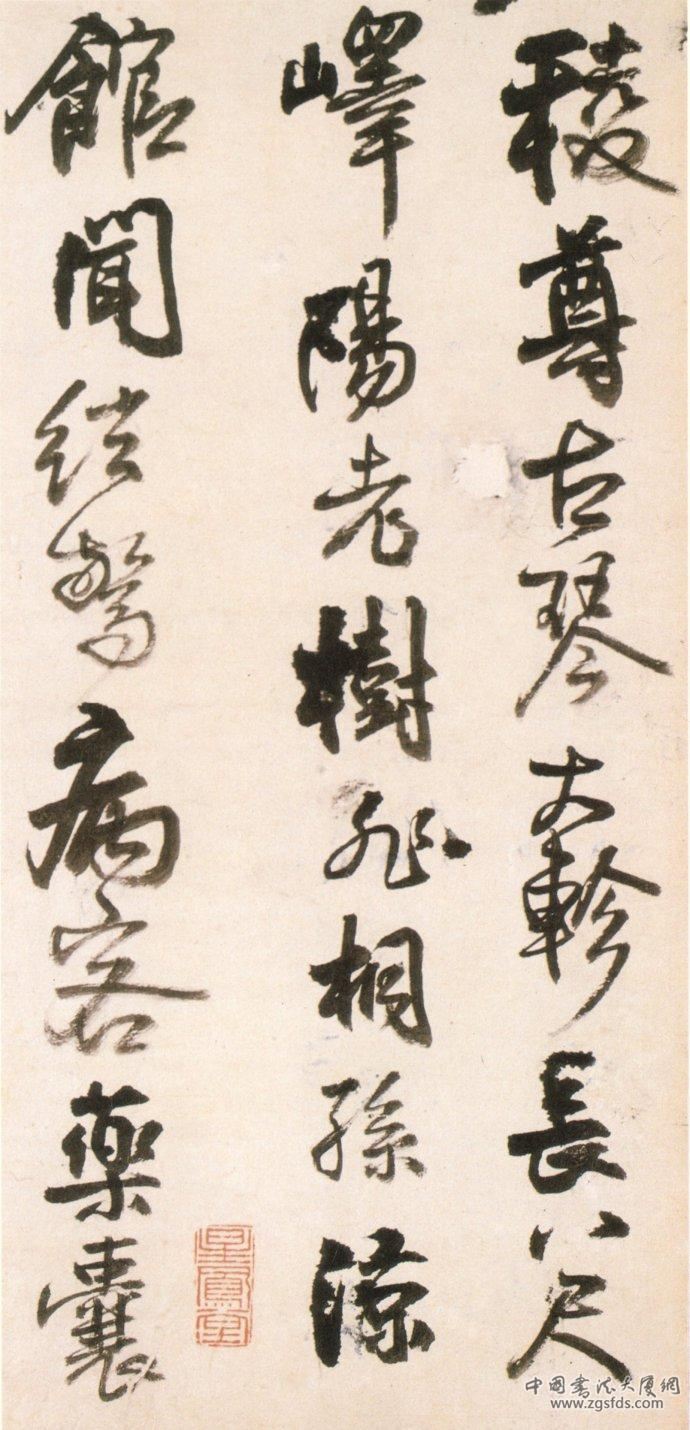 稜尊古琴大軫長八尺
嶧陽老樹非桐孫涼
館聞絃驚病客藥囊
中國書法大厦網
www.zgsfds.com